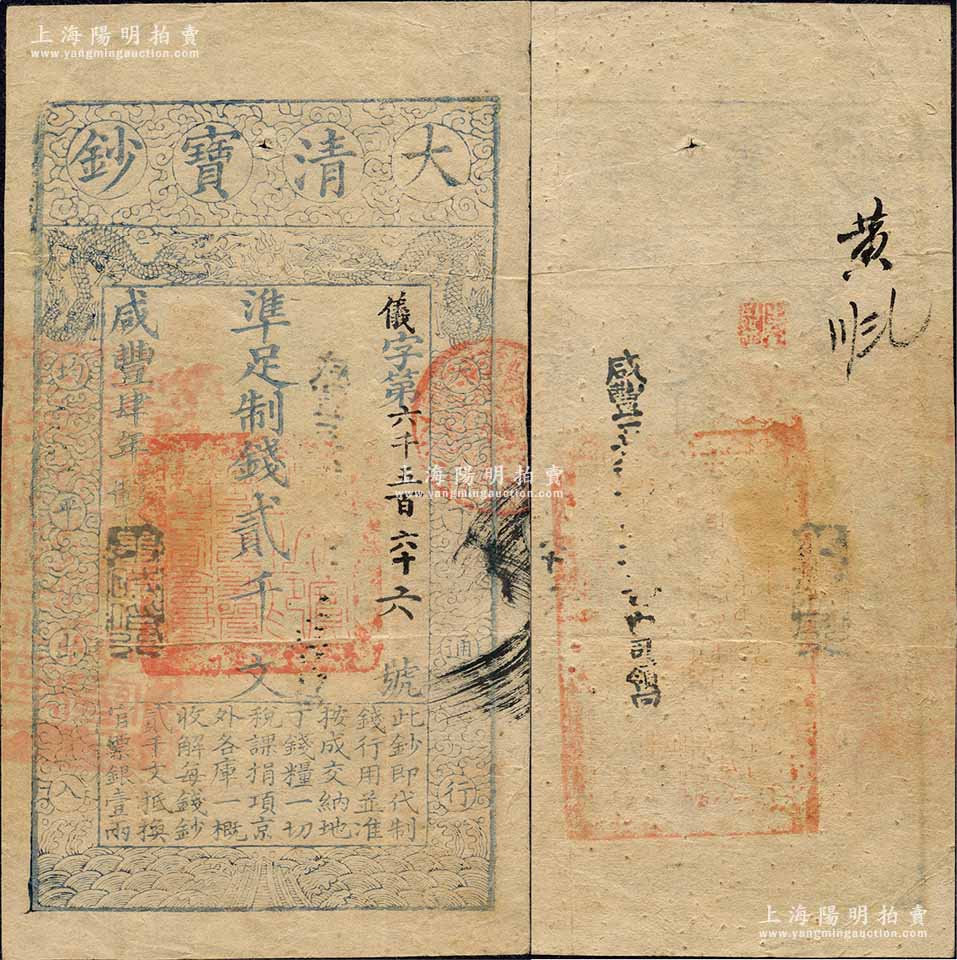 上海陽明拍賣
www.yangmingauction.com
上海陽明拍賣
www.yangmingauction.com
大清寶鈔
儀字第六千五百六十六號
準足制錢貳千文
咸豐肆年
天下通行
均平出入
此鈔即代制
錢行用並准
按成交納地
丁錢糧一切
稅課捐項京
外各庫一概
收解每錢鈔
貳千文抵換
官票銀壹兩
上海陽明拍賣
www.yangmingauction.com
黃
咸豐
司領
上海陽明拍賣
www.yangmingauction.com